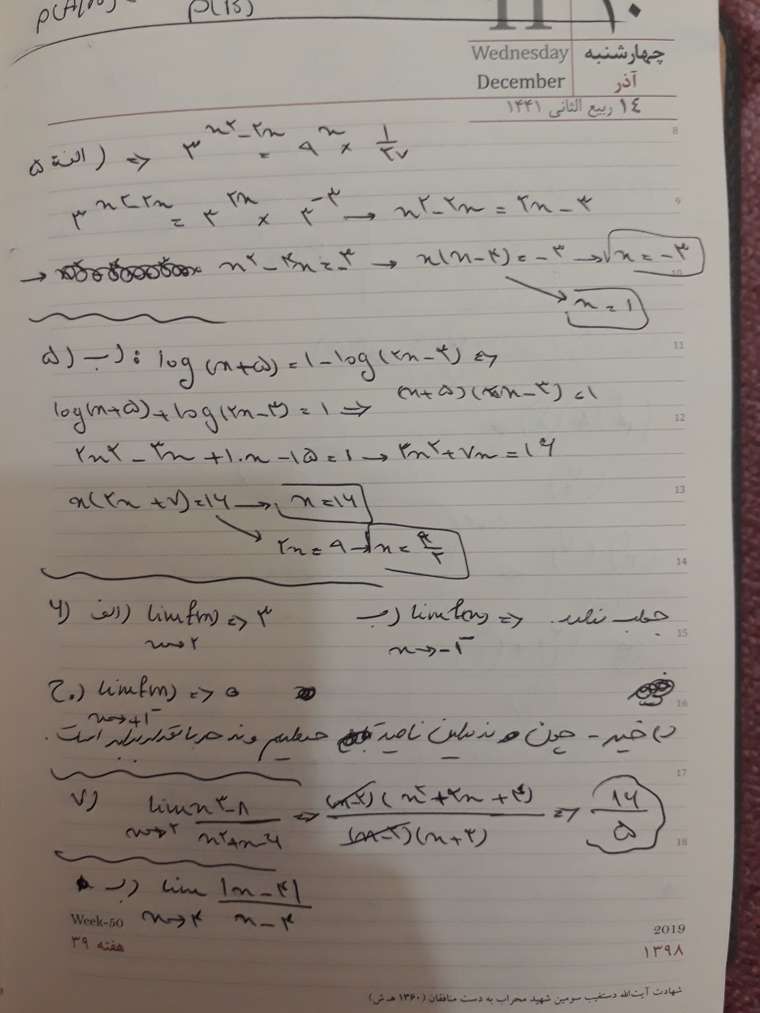 P(A|B) = P(B)
11 ۱۰
Wednesday چهارشنبه
December آذر
١٤ ربیع الثانی ١٤٤١
8
۵ الف) => ۳^(x^۲-۲x) = ۹^x × ۱/۲۷
9
۳^(x^۲-۲x) = ۳^(۲x) × ۳^(-۳) → x^۲-۲x = ۲x-۳
→ x^۲-۴x = -۳ → x(x-۴) = -۳ → x = -۳
10
x = ۱
11
۵) ب): log(x+۵) = ۱-log(۲x-۳) =>
log(x+۵)+log(۲x-۳) = ۱ => (x+۵)(۲x-۳) = ۱
12
۲x^۲-۳x+۱۰x-۱۵ = ۱ → ۲x^۲+۷x = ۱۶
13
x(۲x+۷) = ۱۶ → x = ۱۶
۲x = ۹ → x = ۹/۲
14
۶) الف) lim f(x) => ۳ ب) lim f(x) => جواب ندارد.
15
x→۲ x→-۱^-
ج.) lim f(x) => ۰
16
x→+۱^-
د) خیر - چون در این ناحیه و حد با مقدار برابر است.
17
۷) lim x^۳-۸/x^۲+x-۶ => (x-۲)(x^۲+۲x+۴)/(x-۲)(x+۳) => ۱۲/۵
x→۲
18
ب) lim |x-۴|/x-۴
x→۴
Week-50 2019
هفته ۳۹ ۱۳۹۸
شهادت آیت‌الله دستغیب سومین شهید محراب به دست منافقان (۱۳۶۰ هـ ش)